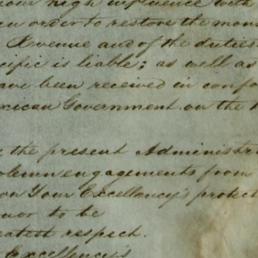 your high influence with
in order to restore the mon
Revenue and of the duties
cific is liable; as well as
ave been received in confo
exican Government on the
the present Administr
olemn engagements from
on Your Excellency's protect
nor to be
eatest respect.
Excellency's